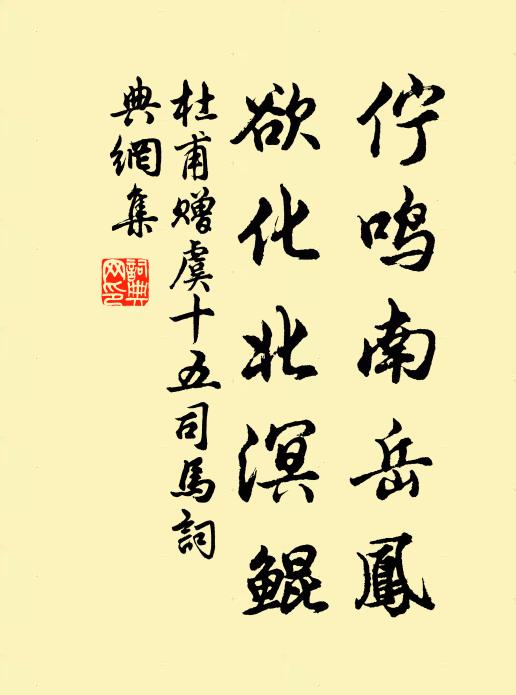 佇鳴南岳鳳
欲化北溟鯤
杜甫贈虞十五司馬詞
典網集
詞典
网印